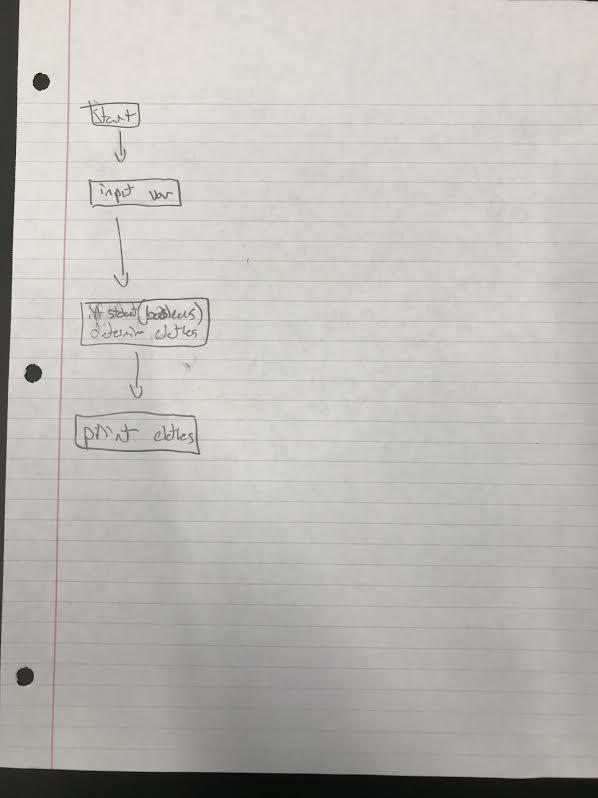 Start
input var
if statent (booleans)
determin clothes
print clothes